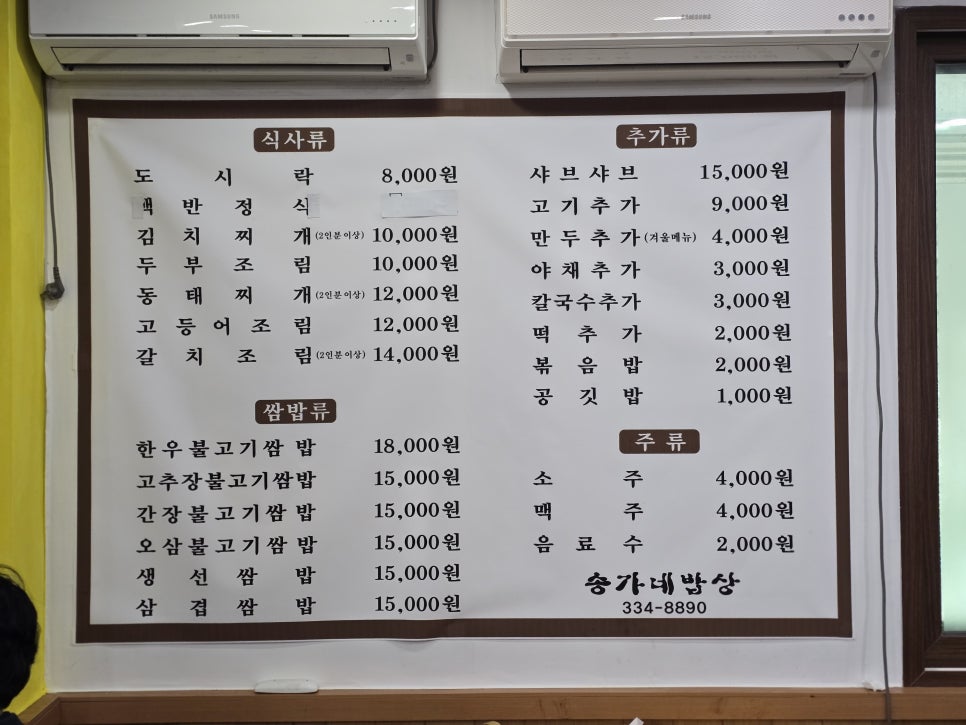 SAMSUNG
SAMSUNG
식사류
도시락 8,000원
백반정식
김치찌개(2인분이상) 10,000원
두부조림 10,000원
동태찌개(2인분이상) 12,000원
고등어조림 12,000원
갈치조림(2인분이상) 14,000원
쌈밥류
한우불고기쌈밥 18,000원
고추장불고기쌈밥 15,000원
간장불고기쌈밥 15,000원
오삼불고기쌈밥 15,000원
생선쌈밥 15,000원
삼겹쌈밥 15,000원
추가류
샤브샤브 15,000원
고기추가 9,000원
만두추가(겨울메뉴) 4,000원
야채추가 3,000원
칼국수추가 3,000원
떡추가 2,000원
볶음밥 2,000원
공깃밥 1,000원
주류
소주 4,000원
맥주 4,000원
음료수 2,000원
송가네밥상
334-8890